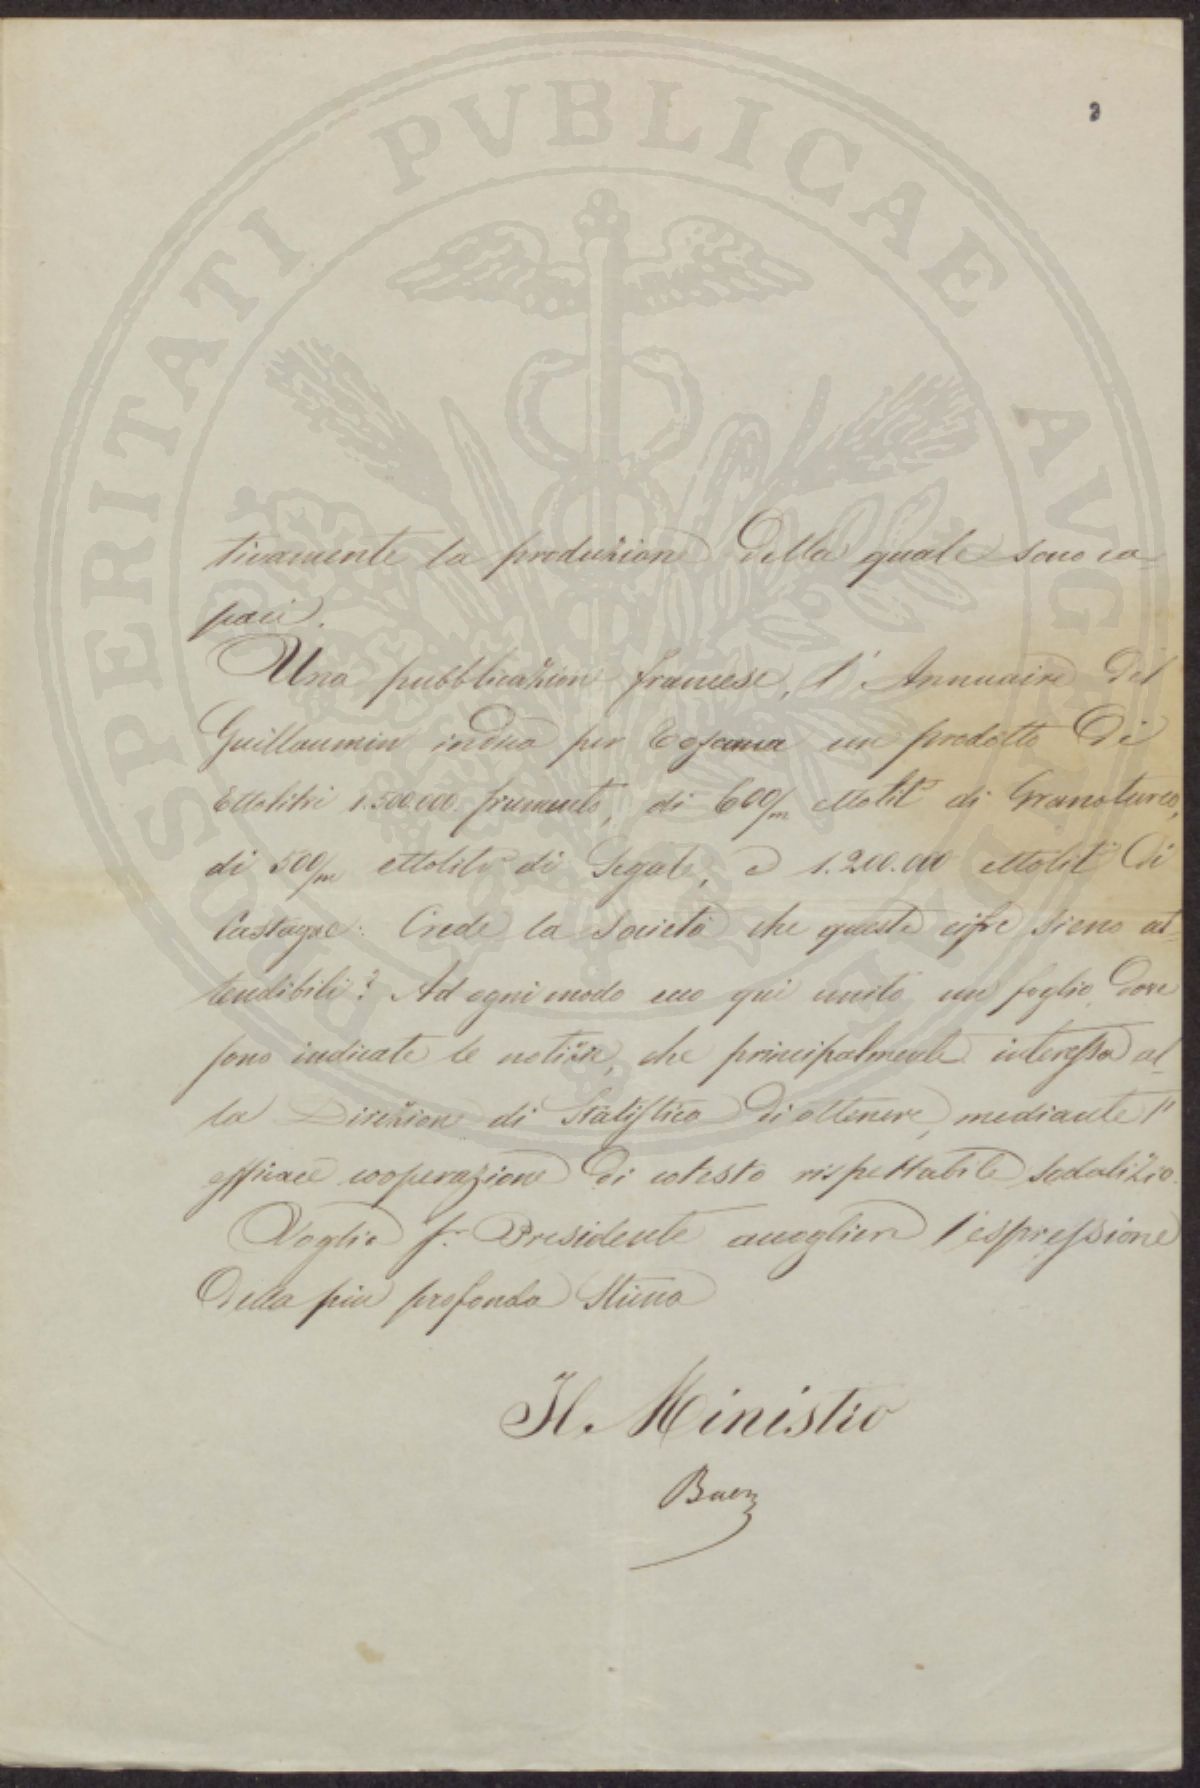 3
PROSPERITATI PVBLICAE AVGENDAE
tivamente la produzione della quale sono ca
paci.
Una pubblicazione francese, l'Annuaire del
Guillaumin indica per Toscana un prodotto di
Ettolitri 1.500.000 frumento, di 600/m ettolit.i di Granoturco,
di 500/m ettolitri di Segale, e 1.200.000 ettolit.i di
Castagne. Crede la Società che queste cifre sieno at-
tendibili? Ad ogni modo ecco qui unito un foglio dove
sono indicate le notizie, che principalmente interessa al-
la Direzione di Statistica di ottenere, mediante l'
efficace cooperazione di cotesto rispettabile sodalizio.
Voglia S.r Presidente accogliere l'espressione
della più profonda Stima
Il Ministro